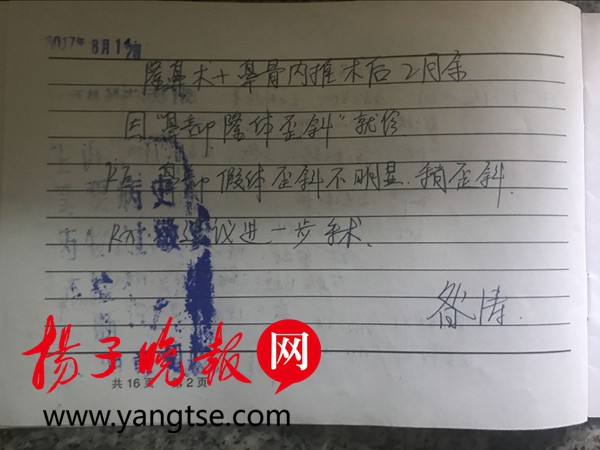 2017年 8月1
隆鼻术+鼻骨内推术后2月余
因"鼻部隆体歪斜"就诊
鼻部假体歪斜不明显.稍歪斜.
病史
议进一步手术.
扬子晚报网
共 16 页 第 2 页
www.yangtse.com